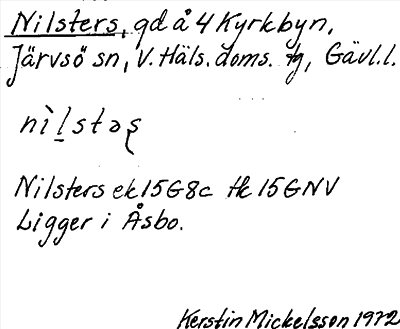 Nilsters, gd å 4 Kyrkbyn,
Järvsö sn, V. Häls. doms. tg, Gävl.l.
nìlstəʂ
Nilsters ek 15G8c tk 15GNV
Ligger i Åsbo.
Kerstin Mickelsson 1972